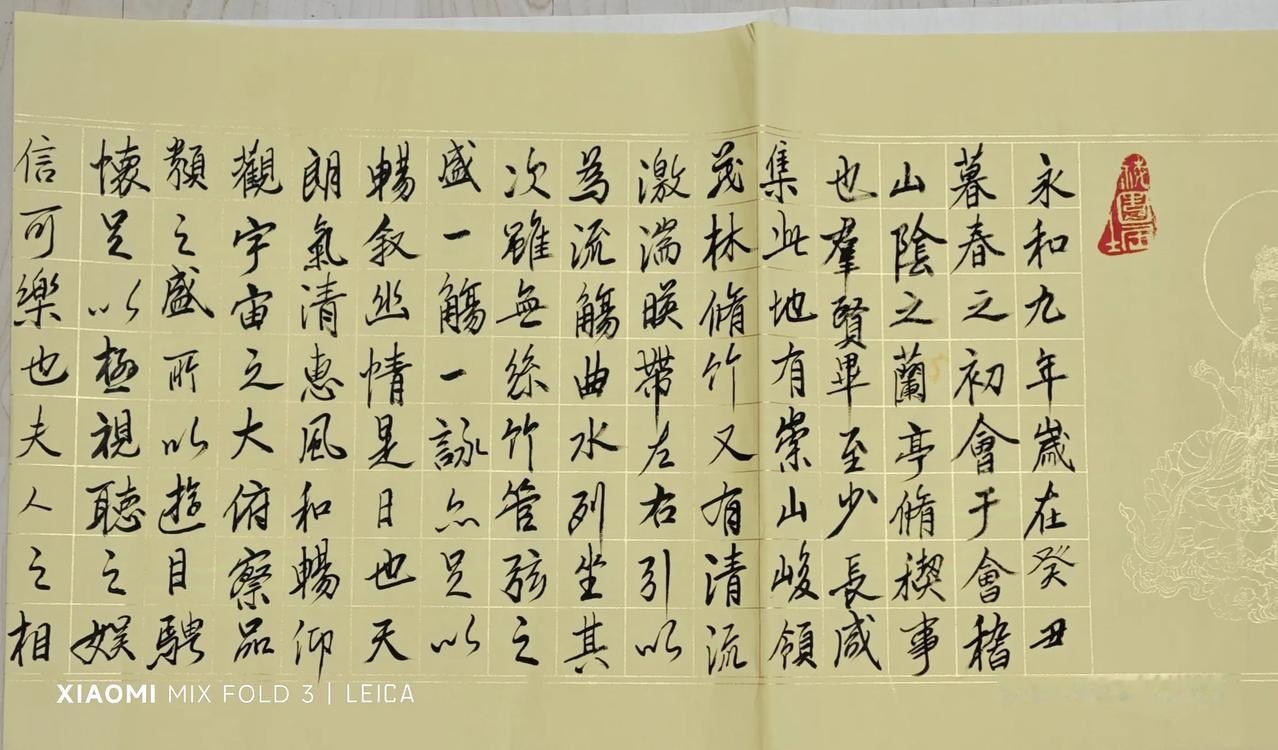 永和九年歲在癸丑
暮春之初會于會稽
山陰之蘭亭脩禊事
也羣賢畢至少長咸
集此地有崇山峻領
茂林脩竹又有清流
激湍暎帶左右引以
為流觴曲水列坐其
次雖無絲竹管弦之
盛一觴一詠亦足以
暢叙幽情是日也天
朗氣清惠風和暢仰
觀宇宙之大俯察品
類之盛所以遊目騁
懷足以極視聽之娛
信可樂也夫人之相
XIAOMI MIX FOLD 3 | LEICA